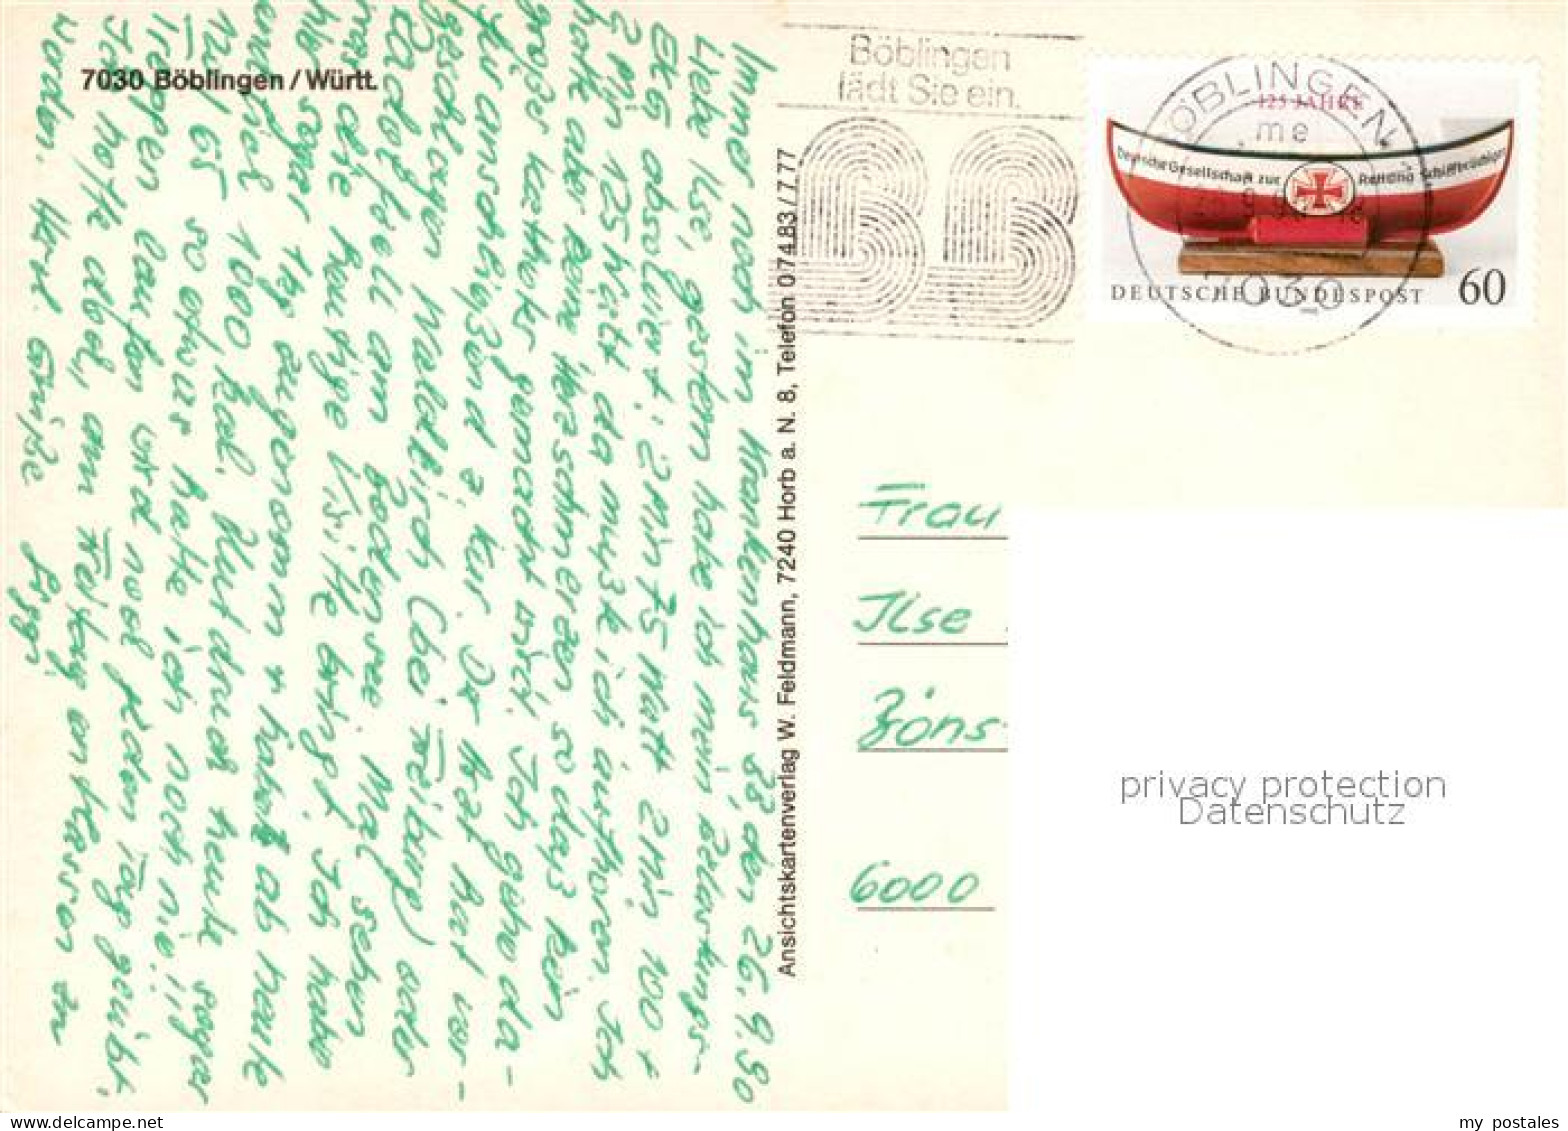 7030 Böblingen / Württ.
Immer noch im Krankenhaus BB, den 26.9.90
Liebe Ilse, gestern habe ich mein Belastungs-
EKG absolviert: 2 min 75 Watt 2 min 100 +
2 min 125 Watt da mußte ich aufhören. Ich
hatte aber keine Herzschmerzen so daß kein
großer Katheks gemacht wird. Ich gehe da-
für anschließend z. Kur. Dr hat hat vor-
geschlagen Waldkirch (bei Freiburg) oder
Radolfzell am Bodensee. Mal sehen
was die heutige Visite bringt. Ich habe
hier sogar 1 kg zugenommen + habe ab heute
1000 kal. Blutdruck heute sogar
so etwas hatte ich noch nie!!!
Treppen laufen wird noch jeden Tag geübt.
Ich hoffe aber, am Freitag entlassen zu
werden. Herzl. Grüße
Ansichtskartenverlag W. Feldmann, 7240 Horb a. N. 8, Telefon 0 74 83 / 7 77
Böblingen
lädt Sie ein.
BB
BÖBLINGEN
me
7030
125 JAHRE
Deutsche Gesellschaft zur Rettung Schiffbrüchiger
DEUTSCHE BUNDESPOST 60
Frau
Ilse
Zöns
6000
privacy protection
Datenschutz
my postales